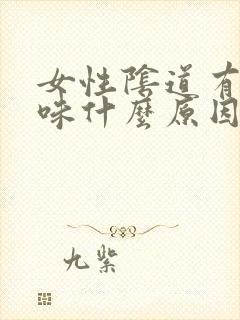 女性陰道有
味什麼原因
九紫